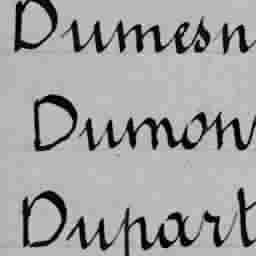 Dumesn
Dumon
Dupart